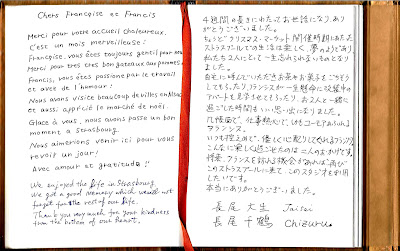 Chers Françoise et Francis
Merci pour votre accueil chaleureux.
C'est un mois merveilleuse!
Françoise, vous êtes toujours gentil pour nous
Merci pour tres tres bon gateaux aux pommes.
Francis, vous êtes passioné par le travail
et avec de l'humour!
Nous avons visité beaucoup de villes en Alsace
et aussi apprécié le marché de noël.
Grace à vous, nous avons passé un bon
moment a Strasbourg.
Nous aimerions venir ici pour vous
revoir un jour!
Avec amour et gratitude!!
We enjoyed the life in Strasbourg.
We got a good memory which would not
forget for the rest of our life.
Thank you very much for your kindness
from the bottom of our heart.
4週間の長きにわたってお世話になり、あり
がとうございました。
ちょうどクリスマス・マーケット開催時期にあたた
ストラスブールでの生活は楽しく、夢のようであり、
私たち2人にとって一生忘れられないものとなり
ました。
自宅に呼んでいただきお茶やお菓子をごちそう
してもらったり、フランシスが一生懸命に改修中の
アパートを見学させてもらったり、お2人と一緒に
過ごした時間はよい思い出になりました。
几帳面で、仕事熱心で、けもユーモアあふれる
フランシス。
いつも控えめで、優しく心配りしてくれるフランソワーズ。
こんなに楽しく過ごせたのはこの二人のおかげです。
将来、フランスを訪れる機会があれば、再び
このストラスブールに来て、このスタジオを利用
したいです。
本当にありがとうございました。
長尾 大生 Taisei
長尾 千鶴 Chizuru.